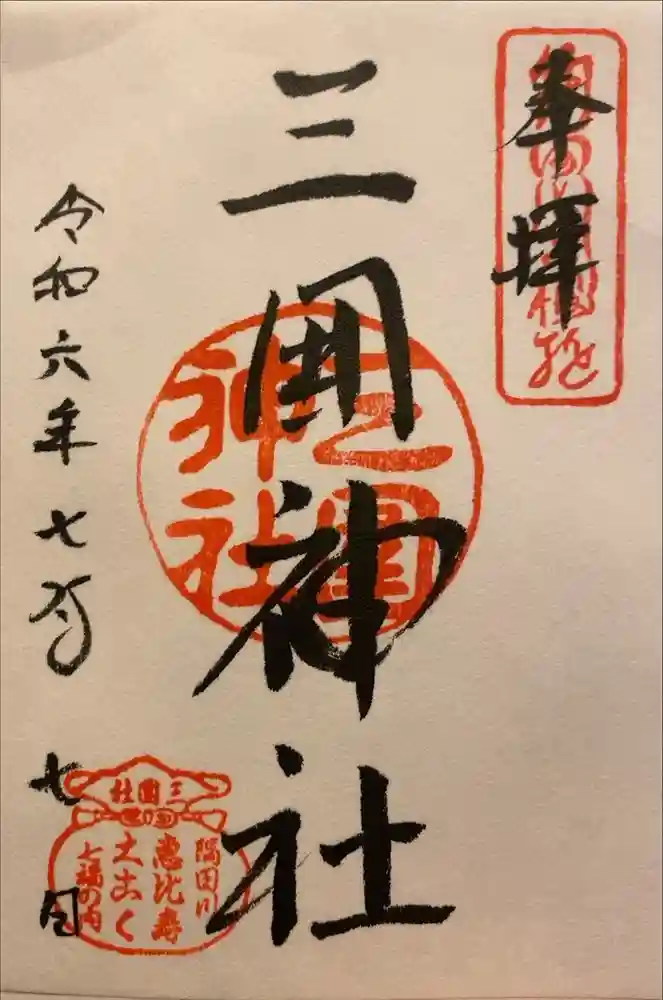 奉拝
三囲神社
三囲神社
令和六年七月七日
三囲社
隅田川
恵比寿
大こく
七福の内